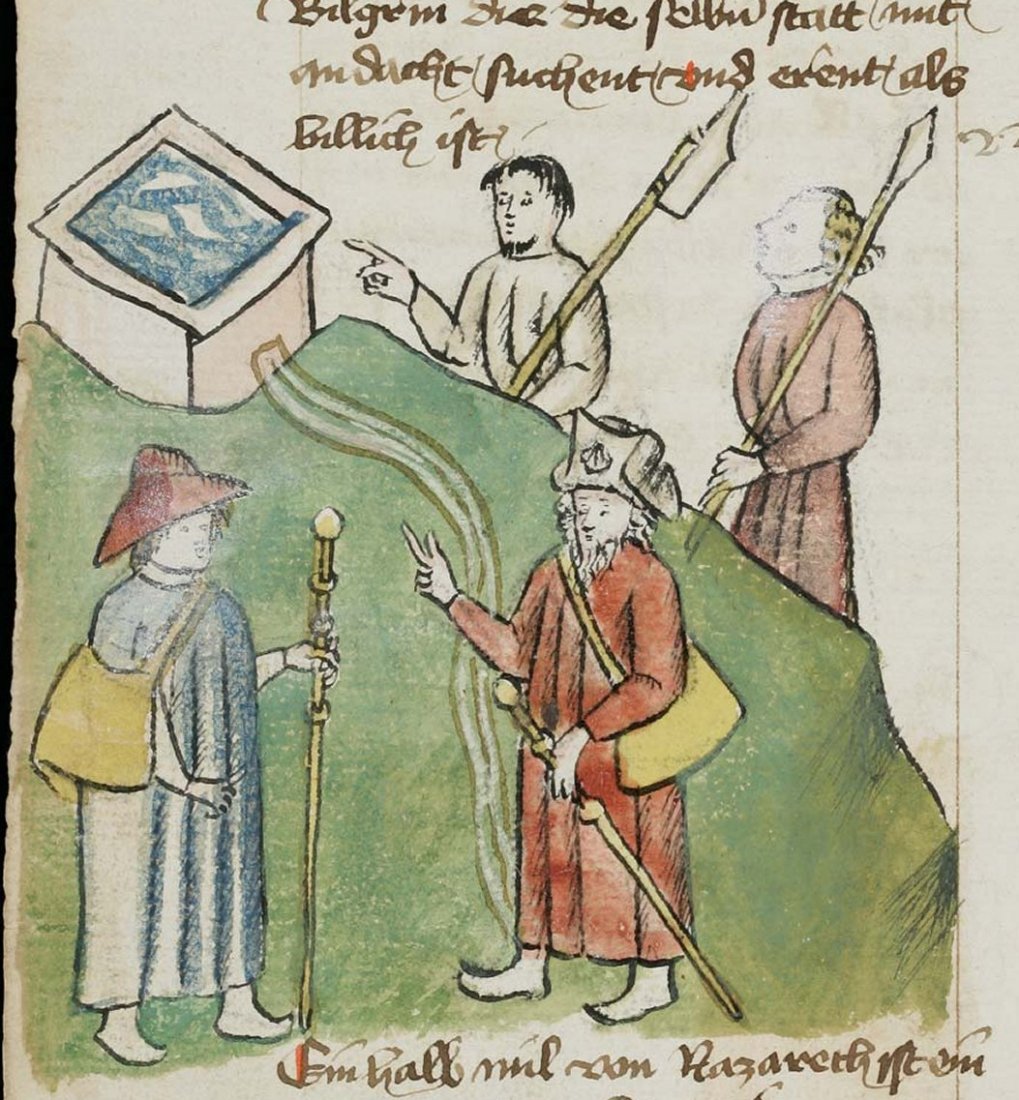 Bilgrin die die selbn statt mit
andacht suchent vnd erent als
billich ist
Ein halb mil von Nazareth ist ein